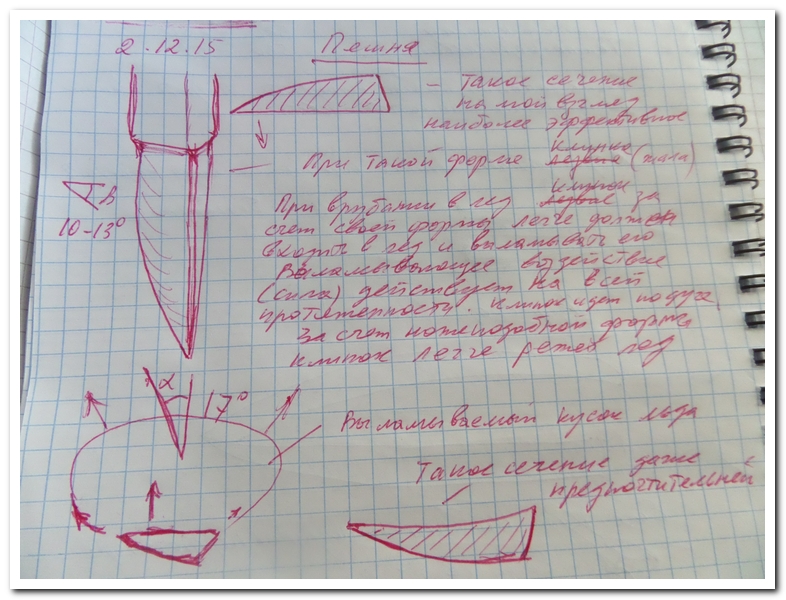 2.12.15
Пешня
– Такое сечение
на мой взгляд
наиболее эффективное
Клинка
При такой форме лезвия (жала)
Клинок
При врубании в лёд лезвие за
счёт своей формы легче должен
входить в лёд и выламывать его
Выламывающее воздействие
(сила) действует на всей
протяженности. Клинок идёт по дуге
За счёт ножеподобной формы
клинок легче режет лёд
β
10-13°
α
17°
Выламываемый кусок льда
Такое сечение даже
предпочтительней